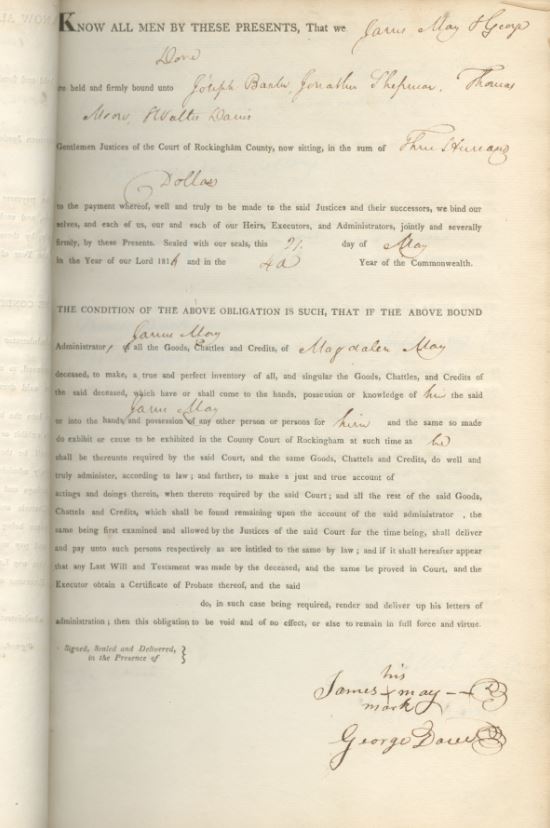 KNOW ALL MEN BY THESE PRESENTS, That we James May & George
Dove
are held and firmly bound unto Joseph Banks, Jonathan Shipman, Thomas
Moore, Walter Davis
Gentlemen Justices of the Court of Rockingham County, now sitting, in the sum of Three
Dollars
to the payment whereof, well and truly to be made to the said Justices and their successors, we bind our
selves, and each of us, our and each of our Heirs, Executors, and Administrators, jointly and severally
firmly, by these Presents. Sealed with our seals, this 21 day of May
in the Year of our Lord 1816 and in the 40 Year of the Commonwealth.
THE CONDITION OF THE ABOVE OBLIGATION IS SUCH, THAT IF THE ABOVE BOUND
James May
Administrator, of all the Goods, Chattles and Credits, of Magdalen May
deceased, to make, a true and perfect inventory of all, and singular the Goods, Chattles, and Credits of
the said deceased, which have or shall come to the hands, possession or knowledge of him the said
James May
or into the hands and possession of any other person or persons for him and the same so made
do exhibit or cause to be exhibited in the County Court of Rockingham at such time as he
shall be thereunto required by the said Court, and the same Goods, Chattels and Credits, do well and
truly administer, according to law; and farther, to make a just and true account of
actings and doings therein, when thereto required by the said Court; and all the rest of the said Goods,
Chattels and Credits, which shall be found remaining upon the account of the said administrator , the
same being first examined and allowed by the Justices of the said Court for the time being, shall deliver
and pay unto such persons respectively as are intitled to the same by law; and if it shall hereafter appear
that any Last Will and Testament was made by the deceased, and the same be proved in Court, and the
Executor obtain a Certificate of Probate thereof, and the said
do, in such case being required, render and deliver up his letters of
administration; then this obligation to be void and of no effect, or else to remain in full force and virtue.
Signed, Sealed and Delivered,
in the Presence of
his
James X may
mark
George Dove